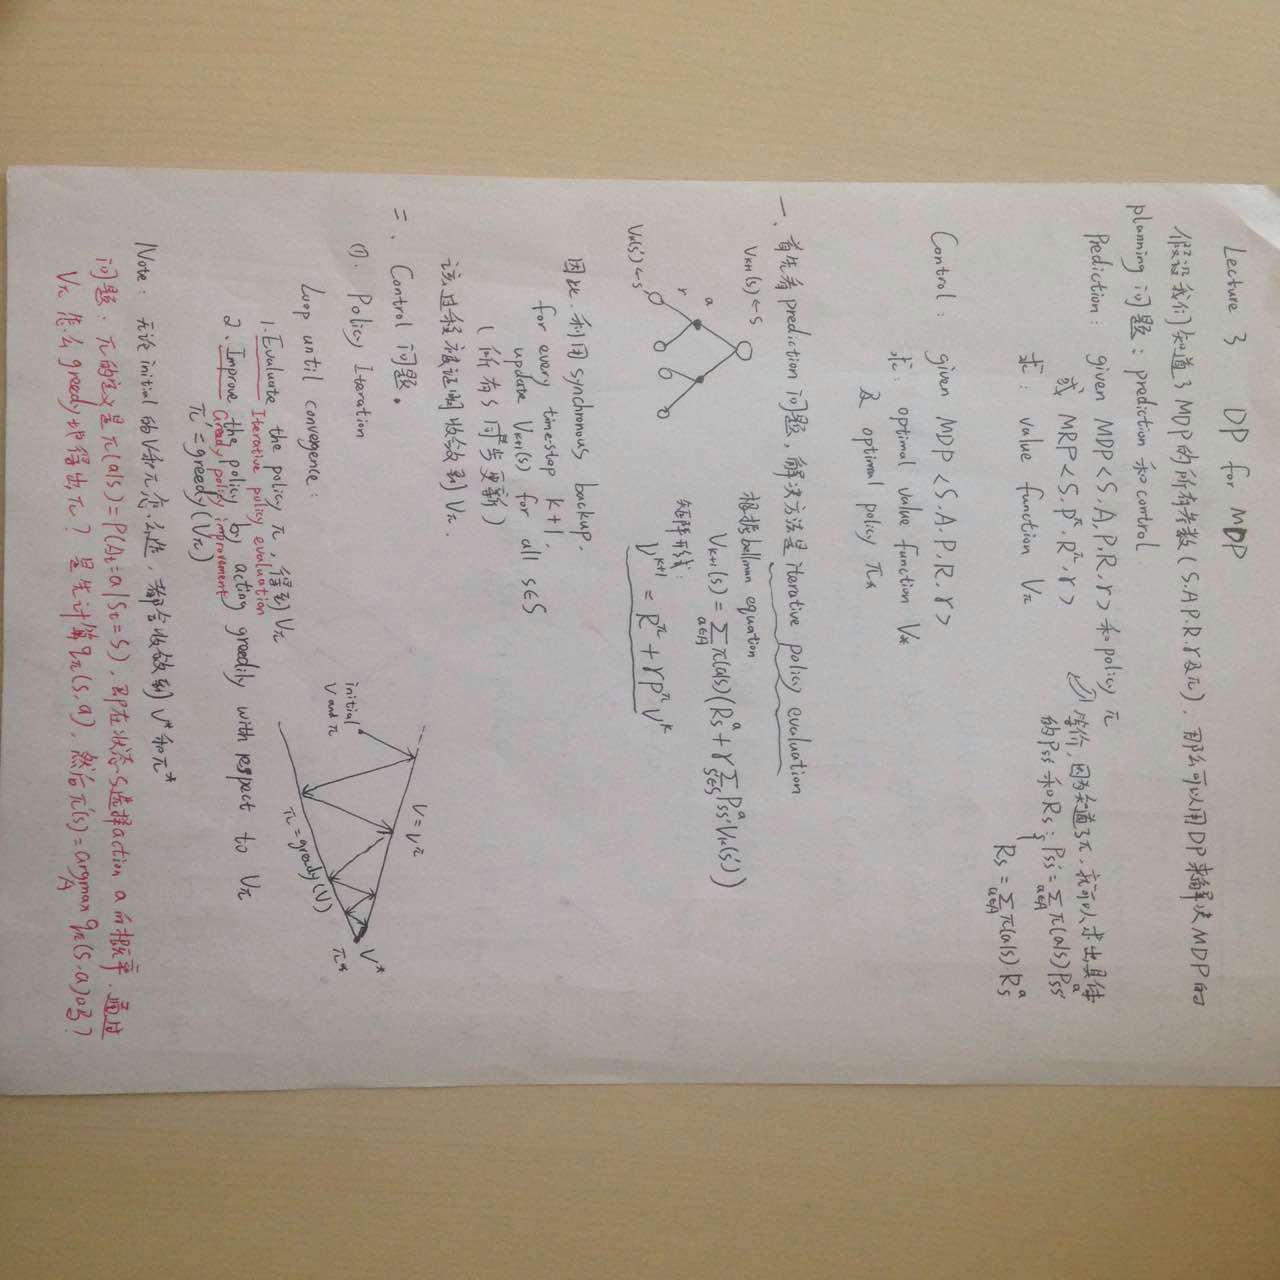 Lecture 3 DP for MDP
假设我们知道了MDP的所有参数(S.A P.R.γ及π),那么可以用DP来解决MDP的
planning 问题: prediction 和control.
Prediction: given MDP<S.A,P,R,γ>和policy π
或 MRP<S.P^π.R^π.γ>
求: value function Vπ
等价,因为知道了π,就可以求出具体
的Pss'和Rs: Pss'=∑_{a∈A}π(a|s)P^a_{ss'}
Rs=∑_{a∈A}π(a|s)R^a_s
Control: given MDP<S.A.P.R.γ>
求: optimal value function V*
及 optimal policy π*
一、首先看prediction问题,解决方法是iterative policy evaluation
V_{k+1}(s)←s
a
r
V_k(s')←s'
根据bellman equation
V_{k+1}(s)=∑_{a∈A}π(a|s)(R^a_s+γ∑_{s'∈S}P^a_{ss'}V_k(s'))
矩阵形式:
V^{k+1}=R^π+γP^πV^k
因此.利用synchronous backup.
for every time-step k+1,
update V_{k+1}(s) for all s∈S
(所有s同步更新)
该过程被证明收敛到Vπ.
二、Control 问题。
(1). Policy Iteration
Loop until convergence:
1.Evaluate the policy π,得到Vπ
Iterative policy evaluation
2.Improve the policy by acting greedily with respect to Vπ
Gready policy improvement
π'=greedy(Vπ)
V=V^π
initial
V and π
V*
π*
π=gready(V)
Note: 无论initial的V和π怎么选,都会收敛到V*和π*
问题: π的定义是π(a|s)=P(At=a|St=s),即在状态s选择action a的概率.通过
Vπ怎么greedy地得出π? 是先计算qπ(s,a),然后π'(s)=argmax_A qπ(s,a)吗?